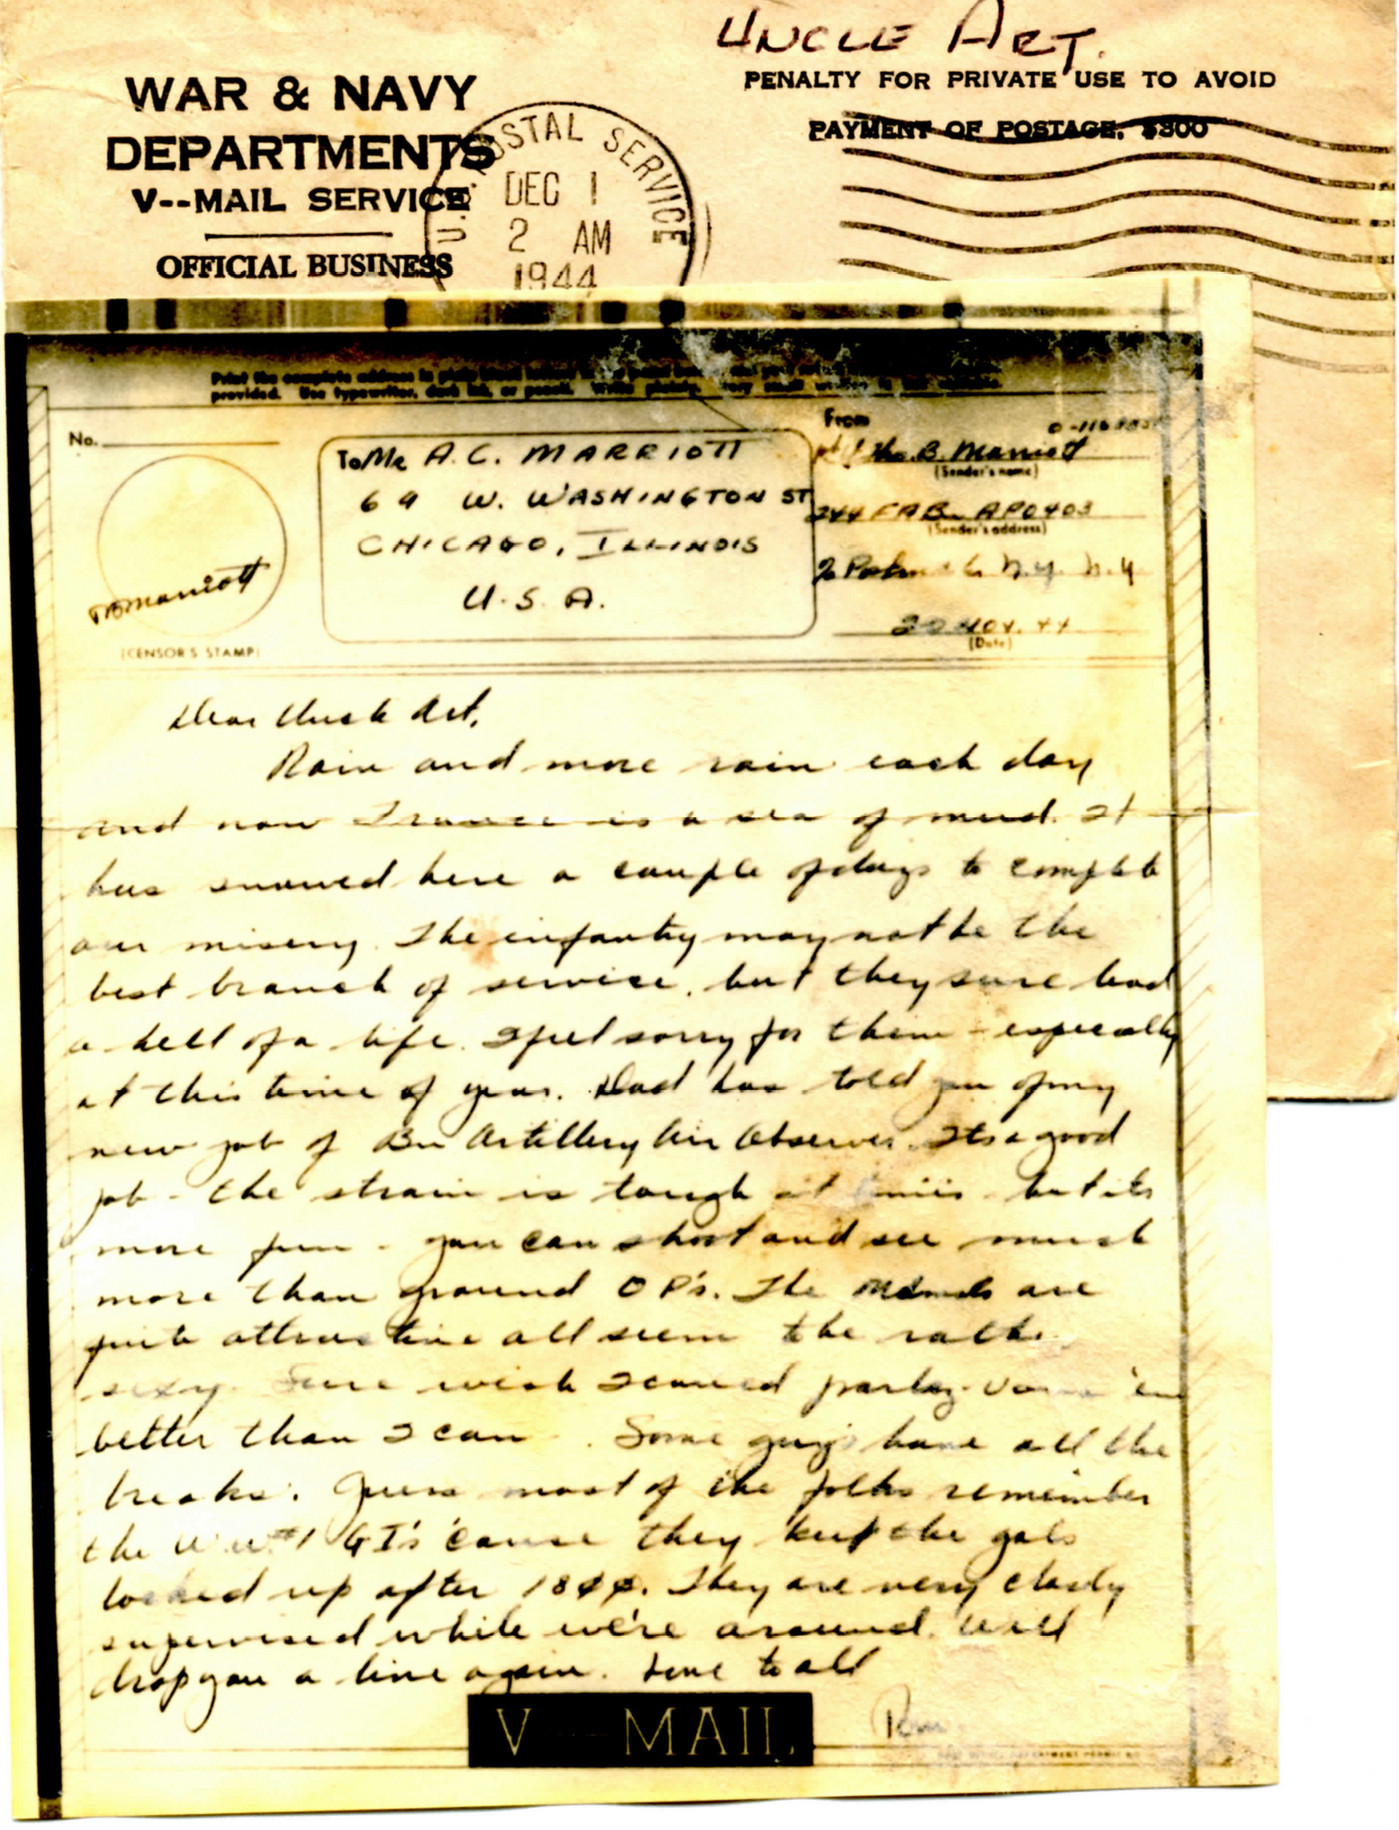 UNCLE ART.
WAR & NAVY
DEPARTMENTS
V--MAIL SERVICE
OFFICIAL BUSINESS
U.S. POSTAL SERVICE
DEC 1
2 AM
1944
PENALTY FOR PRIVATE USE TO AVOID
PAYMENT OF POSTAGE, $300
Print the complete address in plain
provided. Use typewriter, dark ink, or pencil. Write plainly. Very small writing is not
No.
To Mr A.C. MARRIOTT
69 W. WASHINGTON ST
CHICAGO, ILLINOIS
U.S.A.
(CENSOR'S STAMP)
Marriott
From
B. Marriott
(Sender's name)
244 FAB APO 403
(Sender's address)
N.Y. N.Y.
Nov. 44
(Date)
Dear Uncle Art,
Rain and more rain each day
and now France is a sea of mud. It
has snowed here a couple of days to complete
our misery. The infantry may not be the
best branch of service, but they sure lead
a hell of a life. I feel sorry for them - especially
at this time of year. Dad has told you of my
new job of Bn Artillery Air Observer. Its a good
job - the strain is tough at times - but its
more fun - you can shoot and see much
more than ground OP's. The are
quite attractive all seem to be rather
sexy. Sure wish I could parley-vous 'em
better than I can. Some guys have all the
breaks. Guess most of the folks remember
the W.W #1 GI's 'cause they keep the gals
locked up after 1800. They are very closely
supervised while we're around. Will
drop you a line again. Love to all
V MAIL